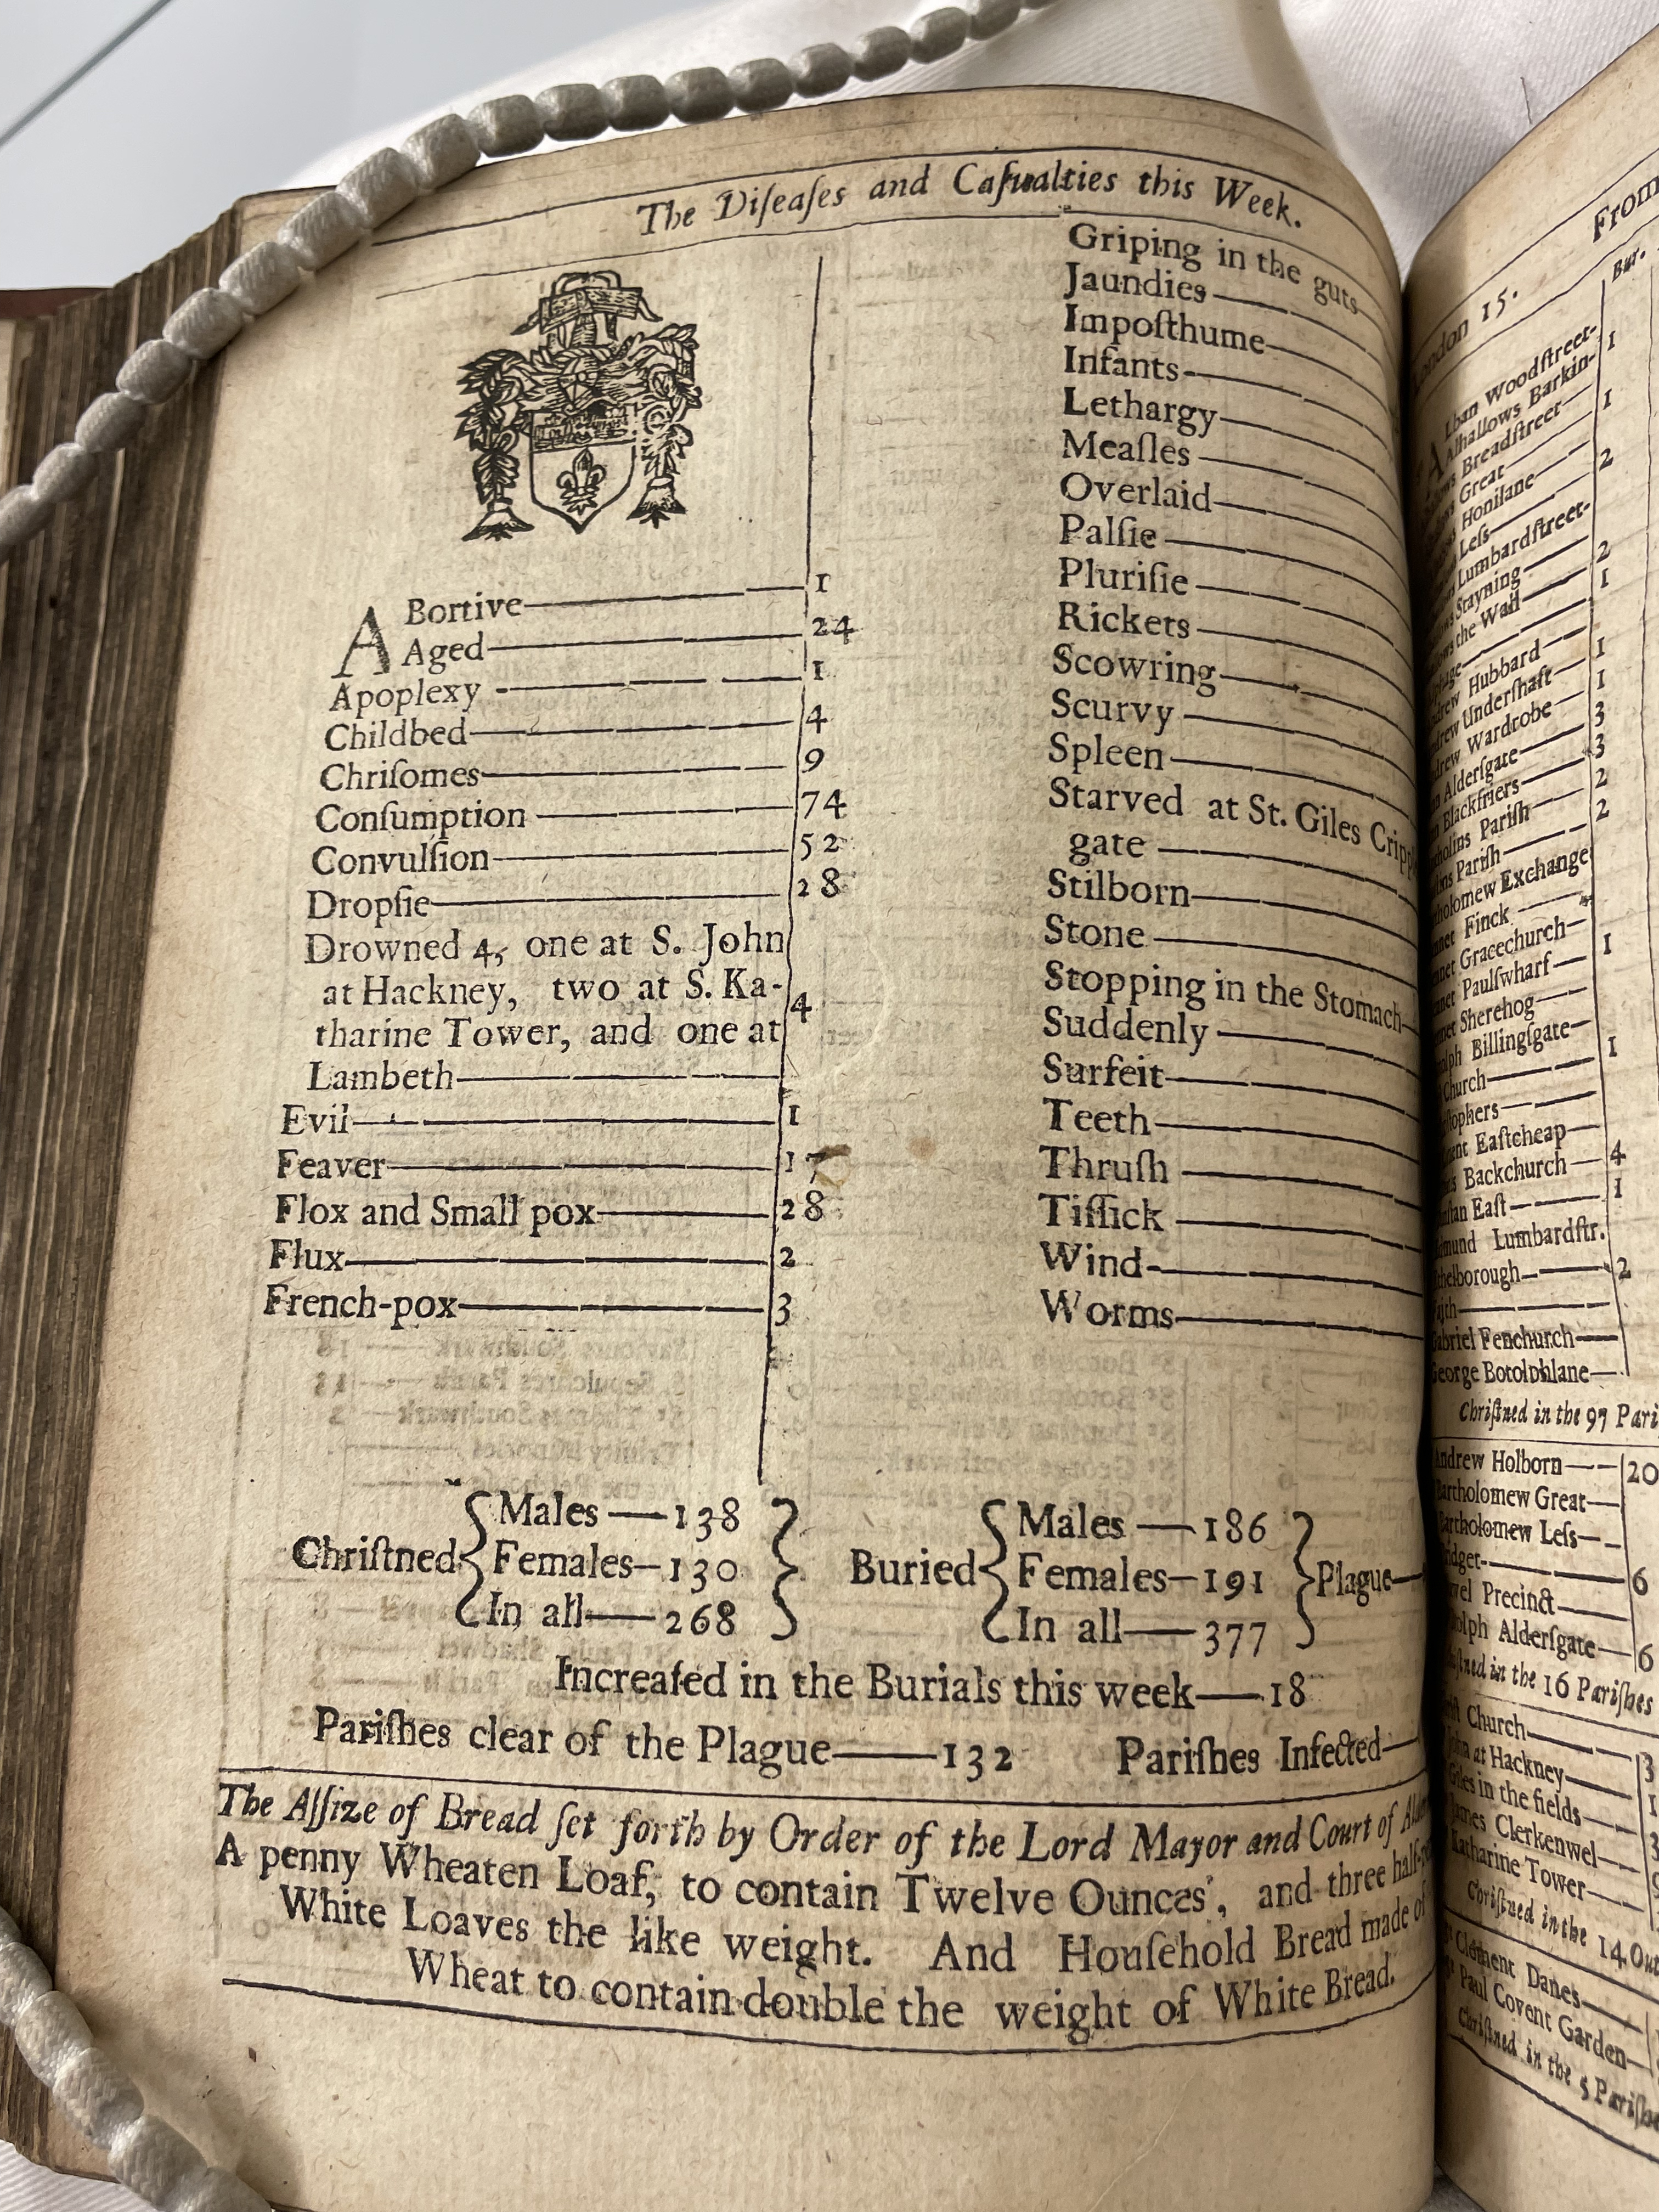 The Diſeaſes and Caſualties this Week.
ABortive 1
Aged 24
Apoplexy 1
Childbed 4
Chriſomes 9
Conſumption 74
Convulſion 52
Dropſie 28
Drowned 4, one at S. John
at Hackney, two at S. Ka-
tharine Tower, and one at
Lambeth 4
Evil 1
Feaver 17
Flox and Small pox 28
Flux 2
French-pox 3
Griping in the guts
Jaundies
Impoſthume
Infants
Lethargy
Meaſles
Overlaid
Palſie
Pluriſie
Rickets
Scowring
Scurvy
Spleen
Starved at St. Giles
gate
Stilborn
Stone
Stopping in the Stomach
Suddenly
Surfeit
Teeth
Thruſh
Tiſſick
Wind
Worms
Chriſtned
Males 138
Females 130
In all 268
Buried
Males 186
Females 191
In all 377
Plague
Increaſed in the Burials this week 18
Pariſhes clear of the Plague 132 Pariſhes Infected
The Aſſize of Bread ſet forth by Order of the Lord Mayor and Court of
A penny Wheaten Loaf, to contain Twelve Ounces, and three
White Loaves the like weight. And Houſehold Bread made of
Wheat to contain double the weight of White Bread.
From
15. Bur.
Woodſtreet- 1
Barkin-
Breadſtreet 1
Great
Honilane 2
Leſs
Lumbardſtreet-
Stayning 2
the Wall 1
Hubbard 1
Underſhaft 1
Wardrobe 3
Alderſgate 3
Blackfriers 2
Pariſh 2
Pariſh
Exchange
Finck
Gracechurch 1
Paulſwharf
Sherehog
Billingſgate 1
Church
Eaſtcheap
Backchurch 4
Eaſt 1
Lumbardſtr.
2
Fenchurch
Botolphlane
Chriſtned in the 97
Andrew Holborn 20
Bartholomew Great
Bartholomew Leſs
6
Precinct
Alderſgate 6
in the 16 Pariſhes
Church 3
at Hackney
in the fields
Clerkenwel
Katharine Tower
Chriſtned in the 14
Clement Danes
Paul Covent Garden
Chriſtned in the 5